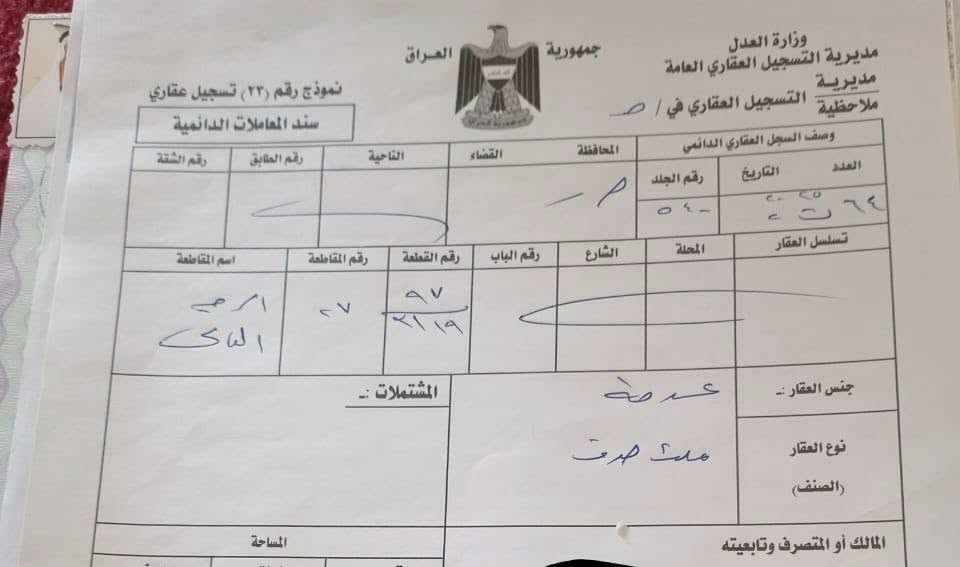 وزارة العدل
مديرية التسجيل العقاري العامة
مديرية
ملاحظية
التسجيل العقاري في /
جمهورية العراق
نموذج رقم (٢٣) تسجيل عقاري
سند المعاملات الدائمية
وصف السجل العقاري الدائمي
المحافظة القضاء الناحية رقم الطابق رقم الشقة
العدد التاريخ رقم الجلد
٦٤ ٥٤٠
تسلسل العقار المحلة الشارع رقم الباب رقم القطعة رقم المقاطعة اسم المقاطعة
٩٧
٣١١٩
٢٧
جنس العقار :ـ عرصة
المشتملات :ـ
نوع العقار ملك صرف
(الصنف)
المالك أو المتصرف وتابعيته
المساحة